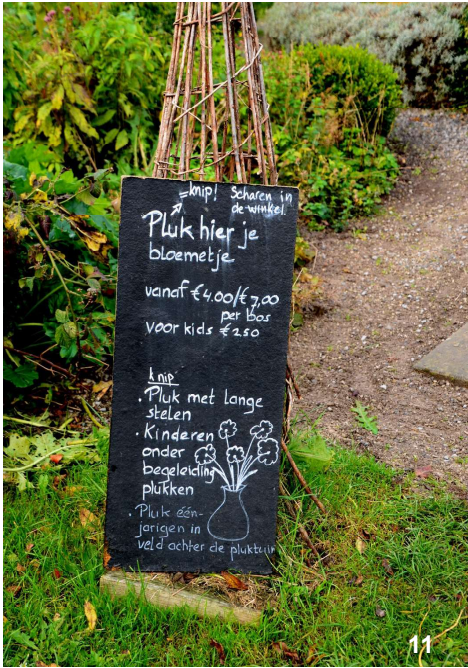 =knip! Scharen in
de winkel.
Pluk hier je
bloemetje
vanaf €4.00/€7,00
per bos
voor kids €2.50
knip
• Pluk met lange
stelen
• Kinderen
onder
begeleiding
plukken
• Pluk één-
jarigen in
veld achter de pluktuin
11